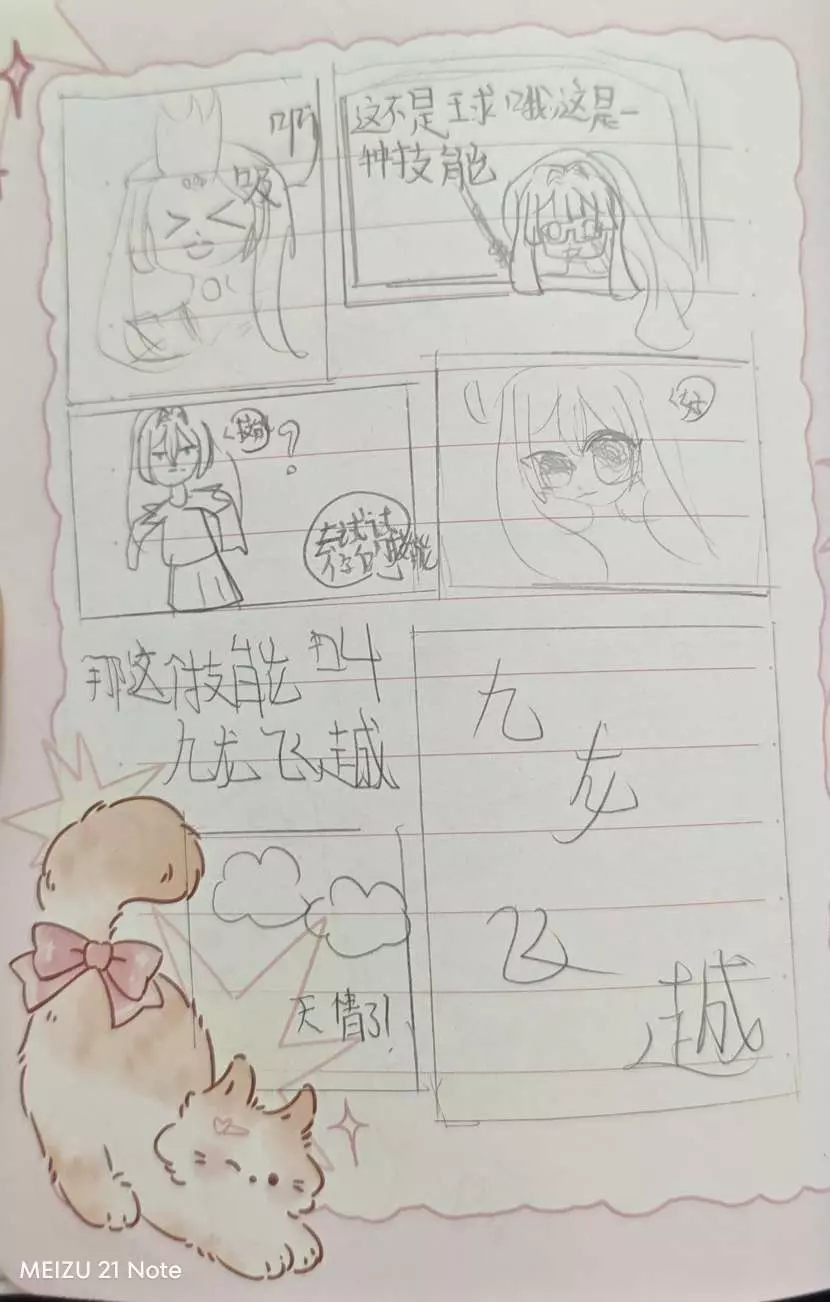 啊
吸
这不是王求哦这是一
种技能
技能
?
去试试
你的技能
好
那这个技能叫
九龙飞越
九
龙
飞
越
天情了!
MEIZU 21 Note